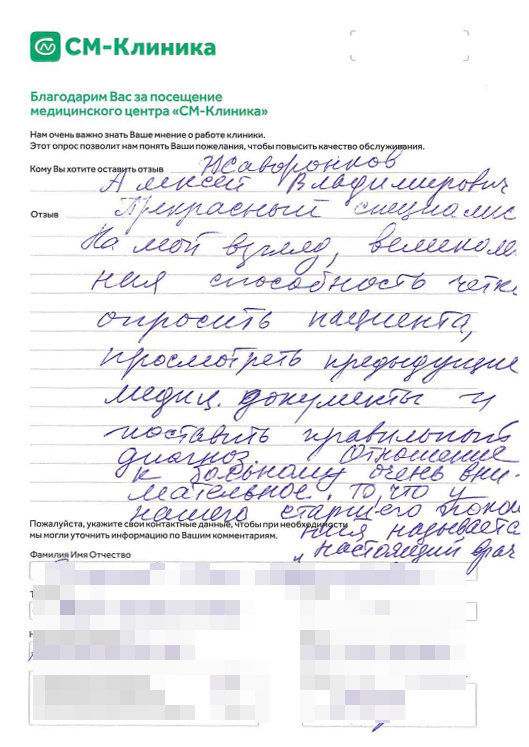 СМ-Клиника
Благодарим Вас за посещение
медицинского центра «СМ-Клиника»
Нам очень важно знать Ваше мнение о работе клиники.
Этот опрос позволит нам понять Ваши пожелания, чтобы повысить качество обслуживания.
Кому Вы хотите оставить отзыв Жаворонков
Алексей Владимирович
Отзыв Прекрасный специалис
На мой взгляд, великол
ная способность четк
опросить пациента,
просмотреть предыдущие
медиц. документы и
поставить правильный
диагноз. Отношение
к больному очень вни-
мательное. То, что у
нашего старшего поко
Пожалуйста, укажите свои контактные данные, чтобы при необходимости
ния называется
мы могли уточнить информацию по Вашим комментариям.
"настоящий врач
Фамилия Имя Отчество